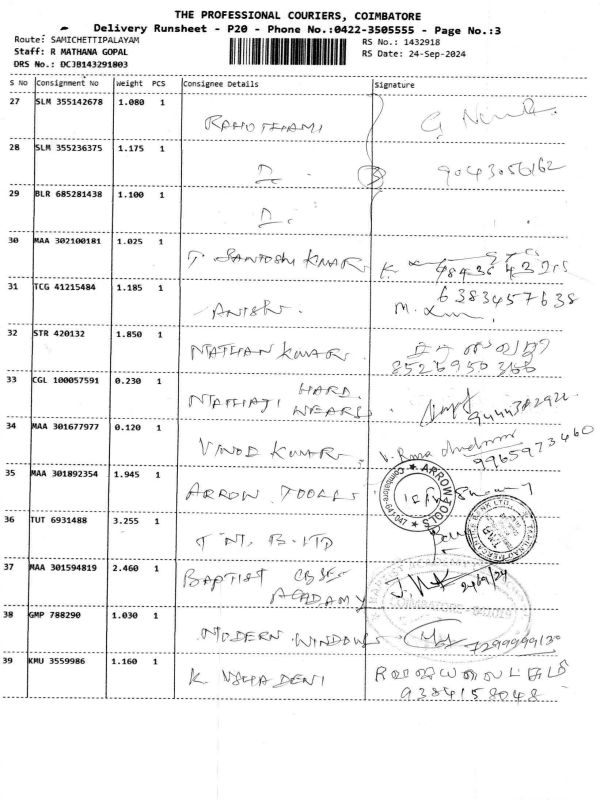 THE PROFESSIONAL COURIERS, COIMBATORE
Delivery Runsheet - P20 - Phone No.:0422-3505555 - Page No.:3
Route: SAMICHETTIPALAYAM
RS No.: 1432918
Staff: R MATHANA GOPAL
RS Date: 24-Sep-2024
DRS No.: DCJB143291803
S No Consignment No Weight PCS Consignee Details Signature
27 SLM 355142678 1.080 1
28 SLM 355236375 1.175 1
9043056162
29 BLR 685281438 1.100 1
30 MAA 302100181 1.025 1
T. SANTOSH KUMAR
31 TCG 41215484 1.185 1
ANISH. 6383457638
32 STR 420132 1.850 1
NATHAN KUMAR.
33 CGL 100057591 0.230 1
NATHAJI HARD WEARS
34 MAA 301677977 0.120 1
VINOD KUMAR. 9965973460
35 MAA 301892354 1.945 1
ARROW TOOLS. ARROW TOOLS
36 TUT 6931488 3.255 1
37 MAA 301594819 2.460 1
BAPTIST CBSE ACADAMY 24/9/24
38 GMP 788290 1.030 1
MODERN WINDOWS
39 KMU 3559986 1.160 1
K. USHA DENI
9384158048